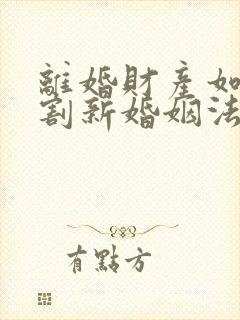 離婚財產如
割新婚姻法
有點方